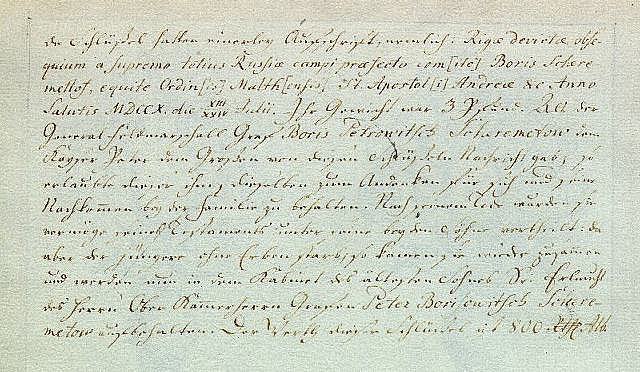 de Schlüssel hatten einerley Aufschrift, nemlich: Rigæ devictæ obse-
quium a supremo totius Russiæ campi præfecto com[ite] Boris Schere
mettof, equite Ordin[is] Malth[ensis], St. Apostol[i] Andreæ &c Anno
Salutis MDCCX. die XIII/XXIV Julii. Ihr Gewicht war 3 Pfund. Als der
General Feldmarschall Graf Boris Petrowitsch Scheremetow dem
Kayser Peter dem Großen von diesen Schlüsseln Nachricht gab, so
erlaubte dieser ihm, dieselben zum Andenken für sich und seine
Nachkommen bey der Familie zu behalten. Nach seinem Tode wurden sie
vermöge seines Testaments unter seine beyden Söhne vertheilt: da
aber der jüngere ohne Erben starb, so kamen sie wieder zusammen
und werden nun in dem Kabinet des ältesten Sohnes Sr. Erlaucht
des Herrn Ober Kammerherrn Grafen Peter Borisowitsch Schere
metow aufbehalten. Der Werth dieser Schlüssel ist 800